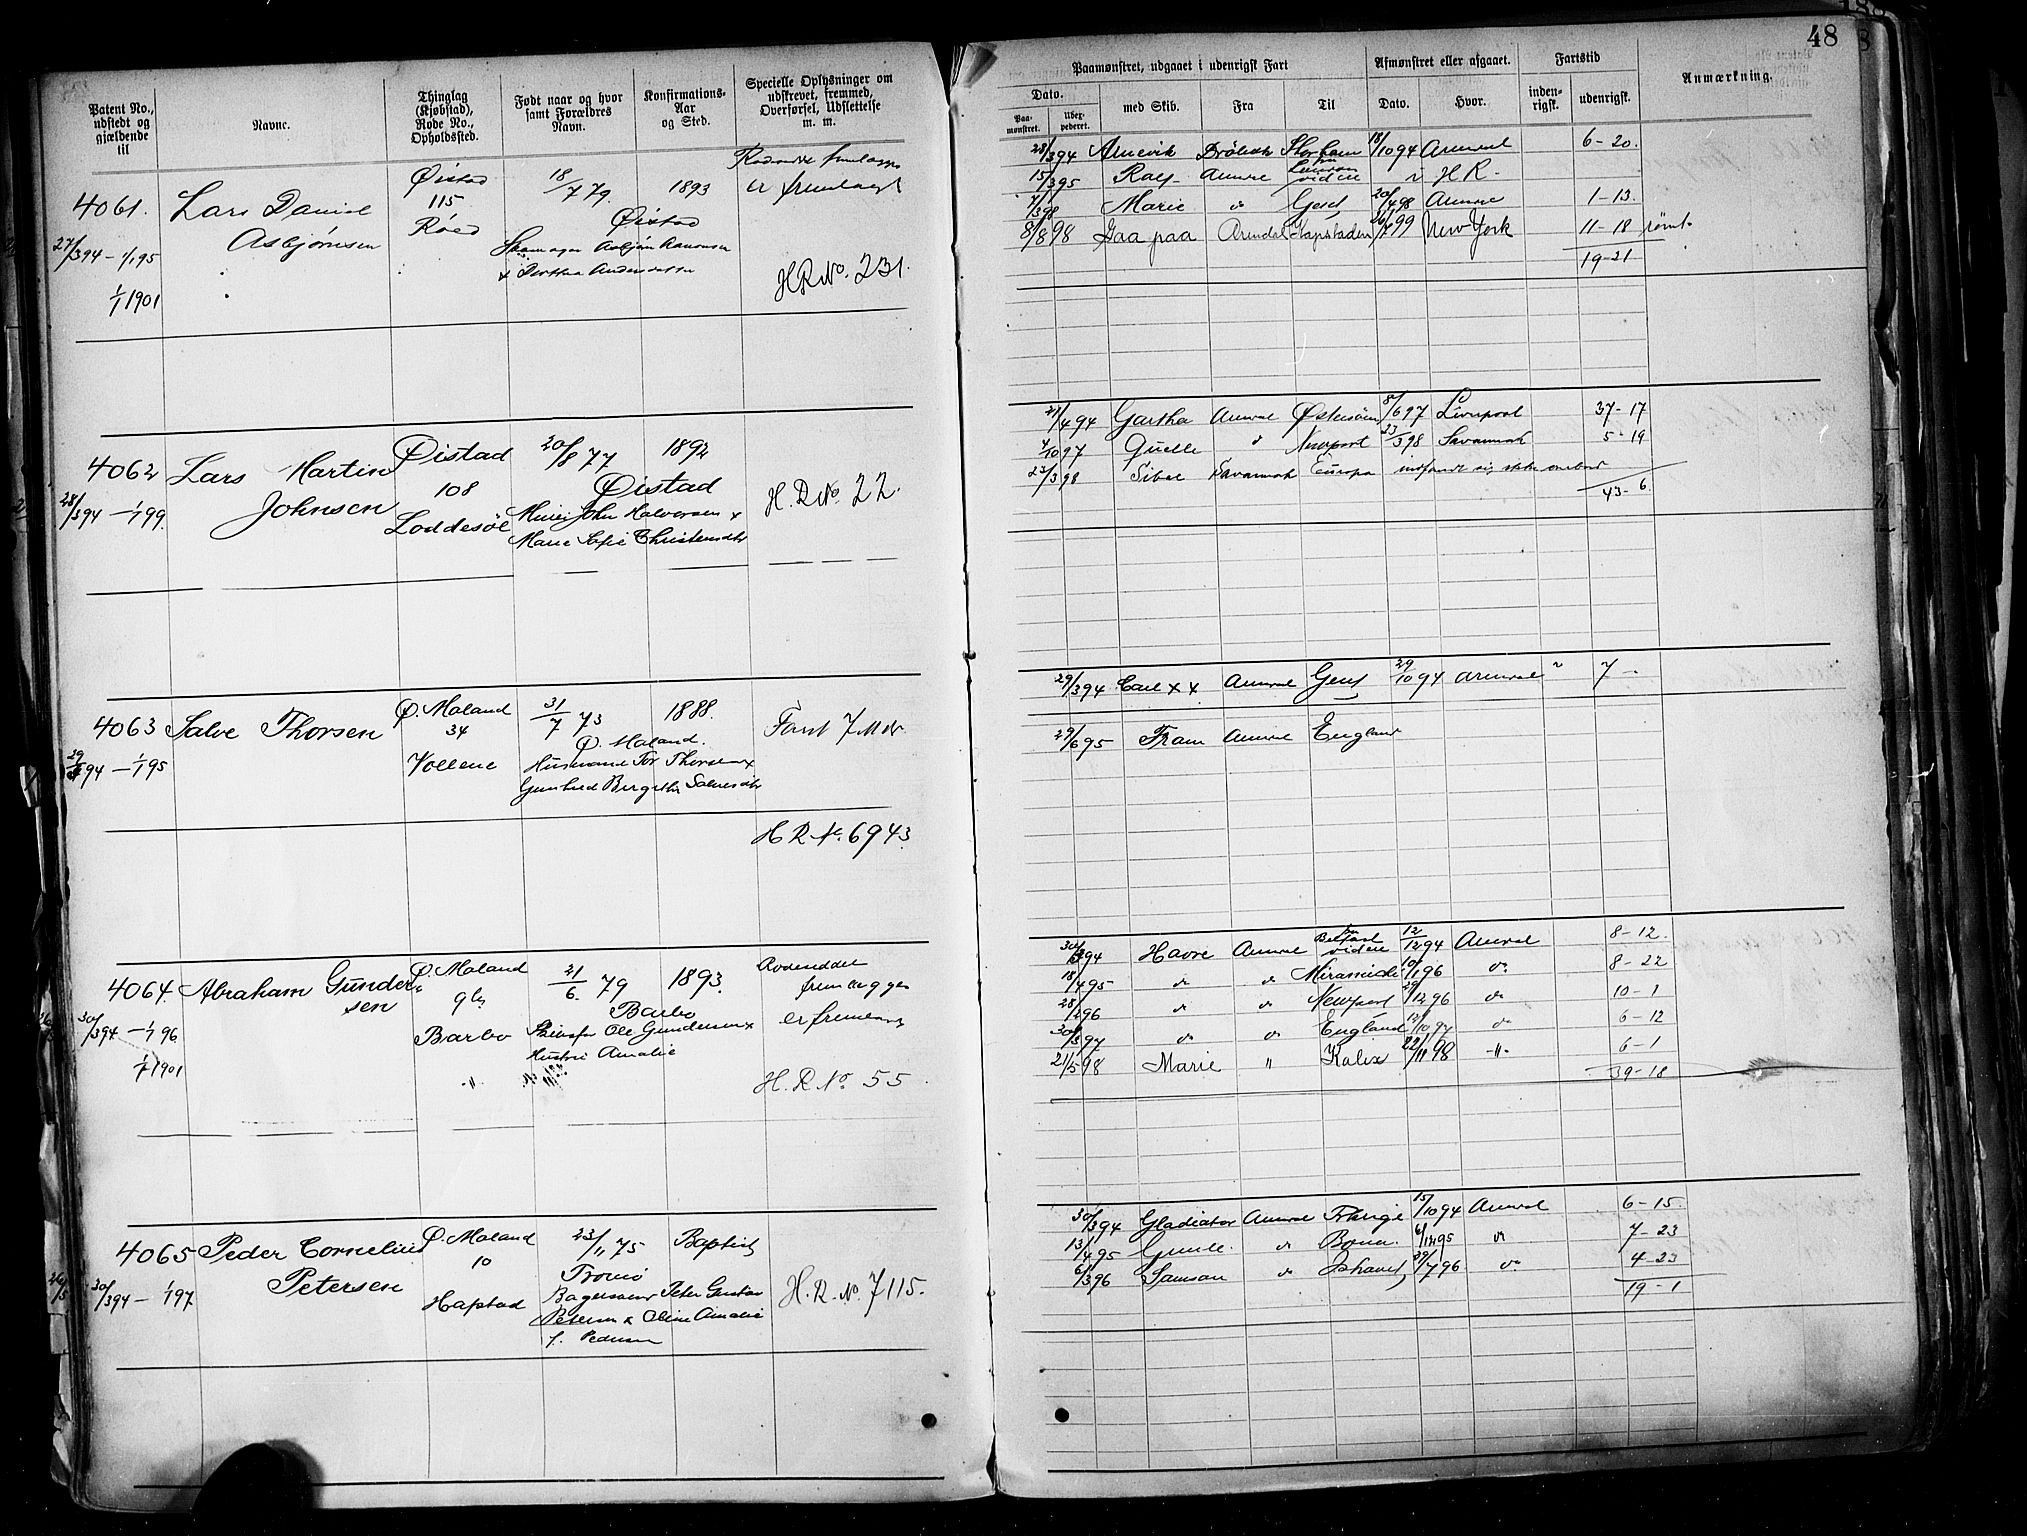 48
Patent No., udstedt og gjældende til
Navne.
Thinglag (Kjøbstad), Rode No., Opholdssted.
Født naar og hvor samt Forældres Navn.
Konfirmations-Aar og Sted.
Specielle Oplysninger om udskrevet, fremmed, Overførsel, Udslettelse m. m.
Paamønstret, udgaaet i udenrigsk Fart
Afmønstret eller afgaaet.
Fartstid
Anmærkning.
Dato.
Paa-mønstret.
med Skib.
Fra
Til
Dato.
Hvor.
inden-rigsk.
udenrigsk.
4061.
27/3 94 - 1/1 95
1/1 1901
Lars Daniel
Asbjørnsen
Øistad
115
Røed
18/7 79.
1893
Øistad
er fremlagt
H R No. 231.
28/3 94 Arnevik 18/10 94 Arendal 6-20.
15/3 95 Rolf Arendal H R.
Marie do Gefl 20/4 98 Arendal 1-13.
8/8 98 Gaa paa Arendal Kapstaden 99 New York 11-18 rømt
19-21
4062
28/3 94 - 1/1 99.
Lars Martin
Johnsen
Øistad
108
Loddesøl
20/8 77
1892
Øistad
John Halvorsen x
Marie Sofie Christensdtr
H. R No. 22.
21/4 94 Gartha Arendal Østersøen 8/6 97 Liverpool 37-17
10 97 Quelle do Newport 23/3 98 Savannah 5-19
23/3 98 Savannah Europa indfandt sig ikke ombord
43-6.
4063
29/3 94 - 1/1 95
Salve Thorsen
Ø. Moland
34
Vollene
31/7 73
1888.
Ø. Moland.
Husmand Tor Thorsen x
Gunhild Birgithe Salvesdtr
Faret 7 Mdr
H R No. 6943.
29/3 94 Carl x x Arendal Gefl 29/10 94 Arendal " 7 -
29/6 95 Fram Arendal England
4064.
30/3 94 - 1/1 96
1/1 1901
Abraham Gunder-
sen
Ø. Moland
9 b
Barbo
"
21/6. 79
1893.
Barbo
Ole Gundersen x
Hustru Amalie
Rodeseddel
fremlægges
er fremlagt
H. R. No. 55.
30/3 94 Havre Arendal Belfast videre 12/12 94 Arendal 8-12.
18/4 95 do do Miramichi 10/1 96 do 8-22
28/2 96 do do Newport 29/12 96 do 10-1
30/3 97 do do England 12/10 97 do 6-12
21/5 98 Marie " Kalix 22/11 98 -"- 6-1
39-18
4065
30/3 94 - 1/1 97.
Peder Cornelius
Petersen
Ø. Moland
10
Hapstad
23/11 75
Baptist
Tromø
Peter Gustav
Petersen & Oline Amalie
f. Pedersen
H. R. No. 7115.
30/3 94 Gladiator Arendal 15/10 94 Arendal 6-15.
13/4 95 do 6/12 95 do 7-23
6/3 96 Samson do 29/7 96 do 4-23
19-1